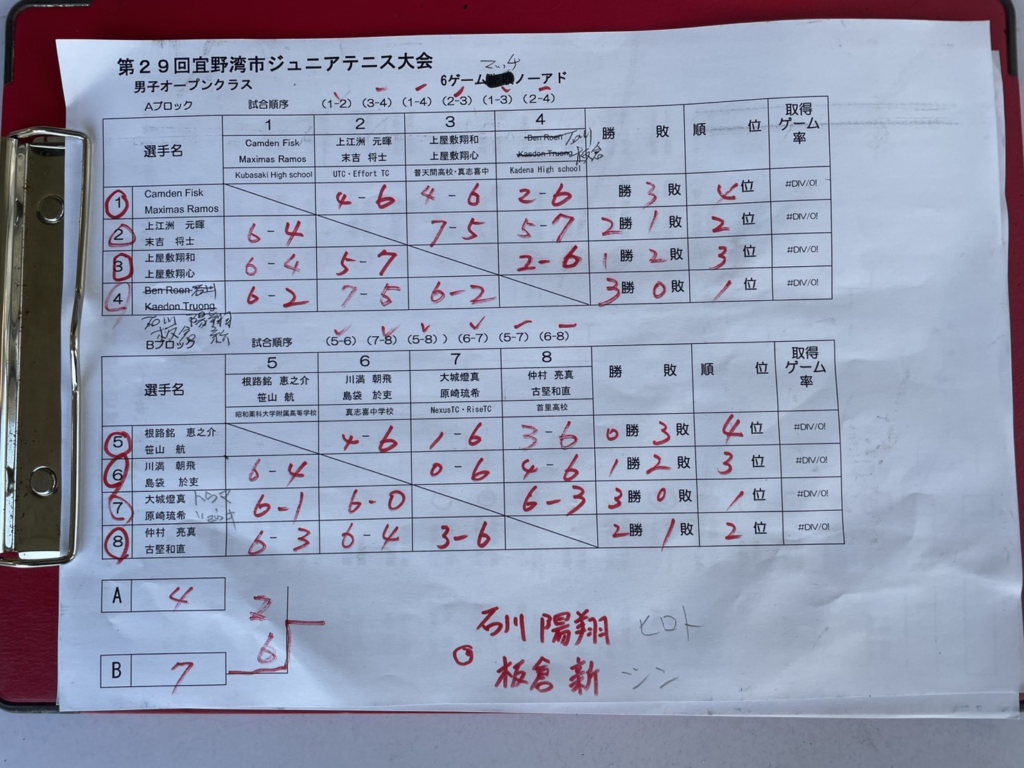 第29回宜野湾市ジュニアテニス大会
男子オープンクラス 6ゲーム ノーアド
Aブロック 試合順序 (1-2) (3-4) (1-4) (2-3) (1-3) (2-4)
選手名 1 2 3 4 勝 敗 順 位 取得ゲーム率
Camden Fisk 上江洲 元暉 上屋敷翔和 Ben Roen 石川
Maximas Ramos 末吉 将士 上屋敷翔心 Kaedon Truong 板倉
Kubasaki High school UTC・Effort TC 普天間高校・真志喜中 Kadena High school
1 Camden Fisk 4-6 4-6 2-6 勝 3敗 4位 #DIV/0!
Maximas Ramos
2 上江洲 元暉 6-4 7-5 5-7 2勝 1敗 2位 #DIV/0!
末吉 将士
3 上屋敷翔和 6-4 5-7 2-6 1勝 2敗 3位 #DIV/0!
上屋敷翔心
4 Ben Roen 石川 6-2 7-5 6-2 3勝 0敗 1位 #DIV/0!
Kaedon Truong
石川 陽翔
板倉 新
Bブロック 試合順序 (5-6) (7-8) (5-8) ) (6-7) (5-7) (6-8)
選手名 5 6 7 8 勝 敗 順 位 取得ゲーム率
根路銘 恵之介 川満 朝飛 大城燈真 仲村 亮真
笹山 航 島袋 於吏 原崎琉希 古堅和直
昭和薬科大学附属高等学校 真志喜中学校 NexusTC・RiseTC 首里高校
5 根路銘 恵之介 4-6 1-6 3-6 0勝 3敗 4位 #DIV/0!
笹山 航
6 川満 朝飛 6-4 0-6 4-6 1勝 2敗 3位 #DIV/0!
島袋 於吏
7 大城燈真 トウマ 6-1 6-0 6-3 3勝 0敗 1位 #DIV/0!
原崎琉希
8 仲村 亮真 6-3 6-4 3-6 2勝 1敗 2位 #DIV/0!
古堅和直
A 4 2
B 7 6
石川 陽翔 ヒロト
板倉 新 シン